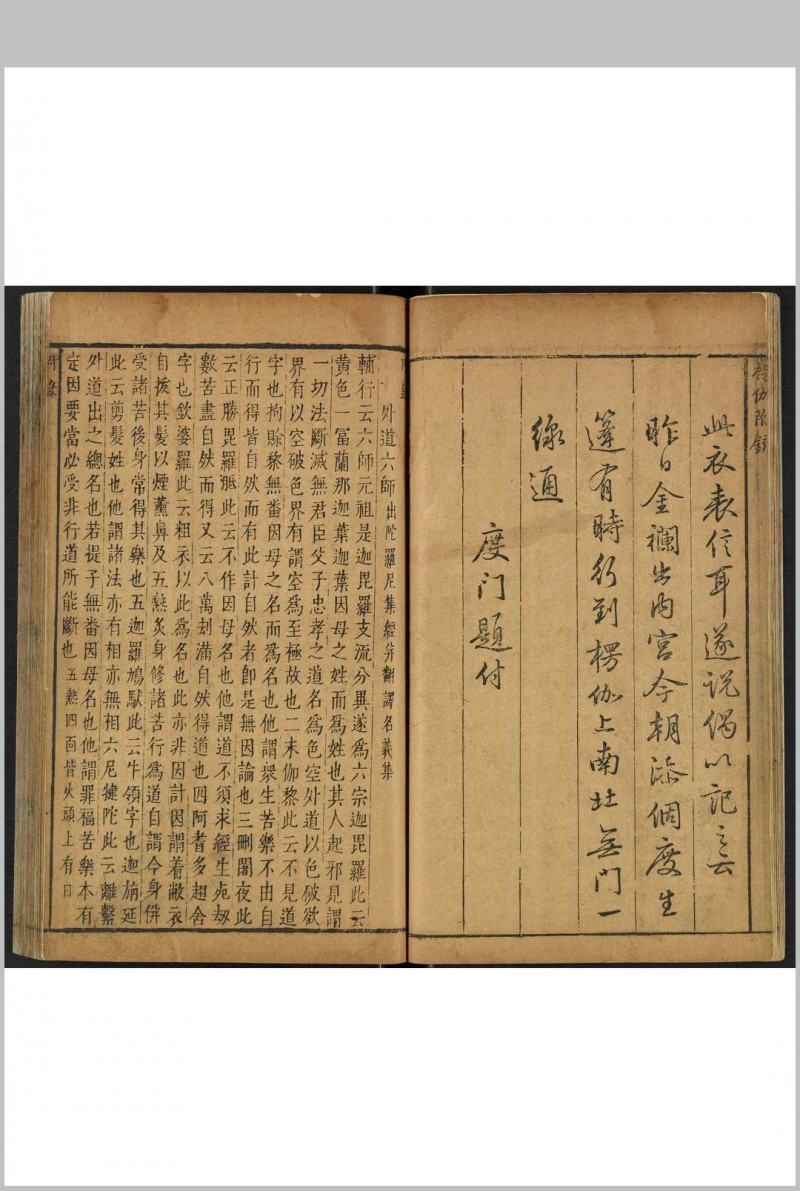 此衣表信耳遂說偈以記之云
昨日金襴出內宮今朝添個度生
篷有時行到楞伽上南北無門一
線通
度门題付
外道六師出陀羅尼集經并翻譯名義集
輔行云六師元祖是迦毘羅支流分異遂爲六宗迦毘羅此云
黃色一富蘭那迦葉迦葉因母之姓而爲姓也其人起邪見謂
一切法斷滅無君臣父子忠孝之道名爲色空外道以色破欲
界有以空破色界有謂空爲至極故也二末伽黎此云不見道
字也拘賒黎無畨因母之名而爲名也他謂衆生苦樂不由自
行而得皆自然而有此計自然者卽是無因論也三刪闍夜此
云正勝毘羅胝此云不作因母名也他謂道不須求經生死刼
數苦盡自然而得又云八萬刦滿自然得道也四阿耆多趐舍
字也欽婆羅此云粗衣以此爲名也此亦非因計因謂着敝衣
自拔其髮以煙薰鼻及五𤍠炙身修諸苦行爲道自謂今身併
受諸苦後身常得其樂也五迦羅鳩馱此云牛領字也迦旃延
此云剪髮姓也他謂諸法亦有相亦無相六尼犍陀此云離繫
外道出之總名也若提子無畨因母名也他謂罪福苦樂本有
定因要當必受非行道所能斷也五熱四面皆火頭上有日